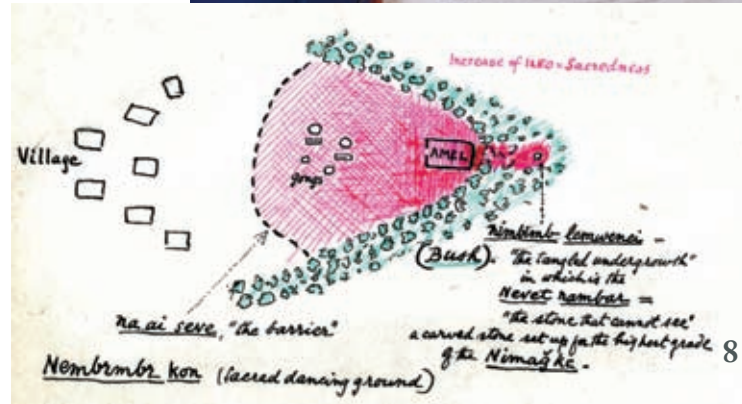 Increase of ILEO = Sacredness
Village
gongs
AMEL
nimbimb lemwenei -
(Bush). "the tangled undergrowth"
in which is the
Nevet nambar =
"the stone that cannot see"
a carved stone set up for the highest grade
of the Nimaŋke.
na ai seve, "the barrier"
Nembrmbr kon (Sacred dancing ground)
8